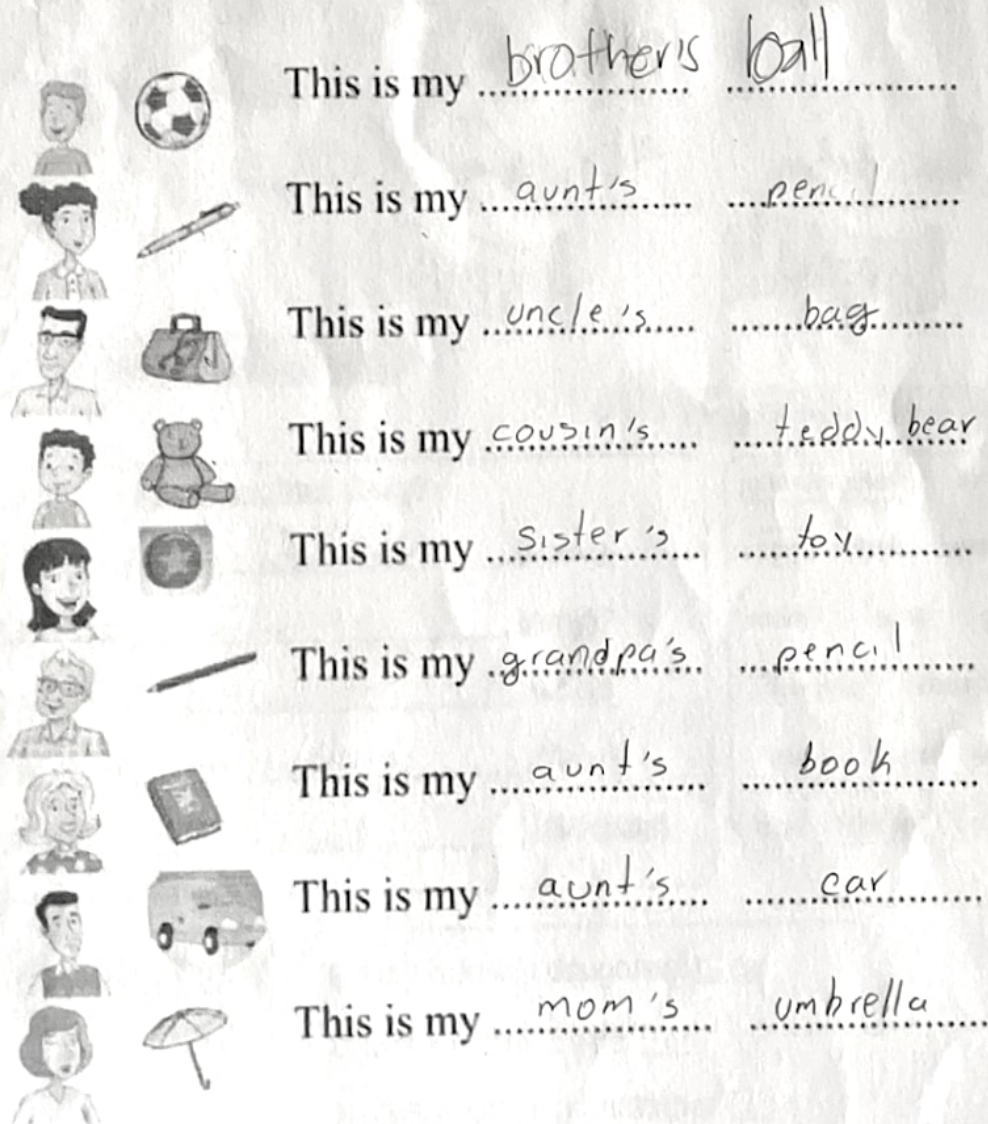 This is my brother's ball
This is my aunt's pencil
This is my uncle's bag
This is my cousin's teddy bear
This is my sister's toy
This is my grandpa's pencil
This is my aunt's book
This is my aunt's car
This is my mom's umbrella